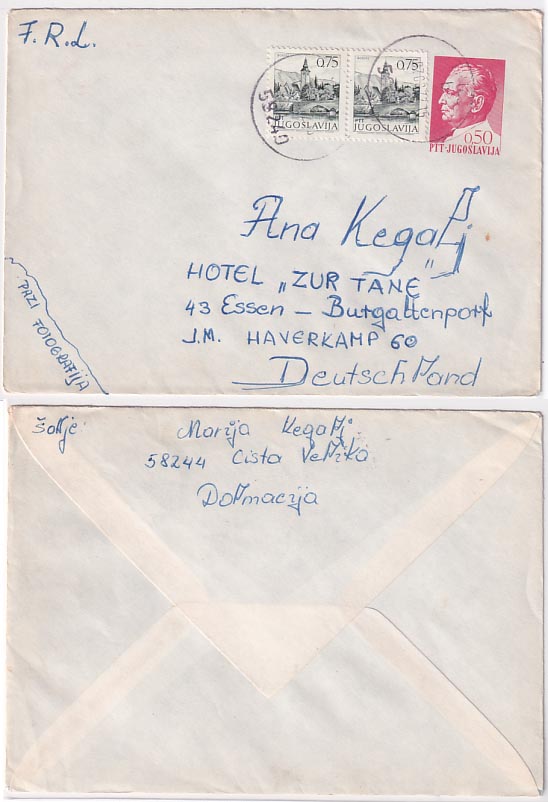 F. R. L.
0,75
0,75
JUGOSLAVIJA
JUGOSLAVIJA
0,50
PTT-JUGOSLAVIJA
Ana Kegalj
HOTEL „ZUR TANE"
43 Essen - Burgaltenporf
J.M. HAVERKAMP 60
Deutschland
PAZI FOTOGRAFIJA
Šalje
Marija Kegalj
58244 Cista Velika
Dalmacija